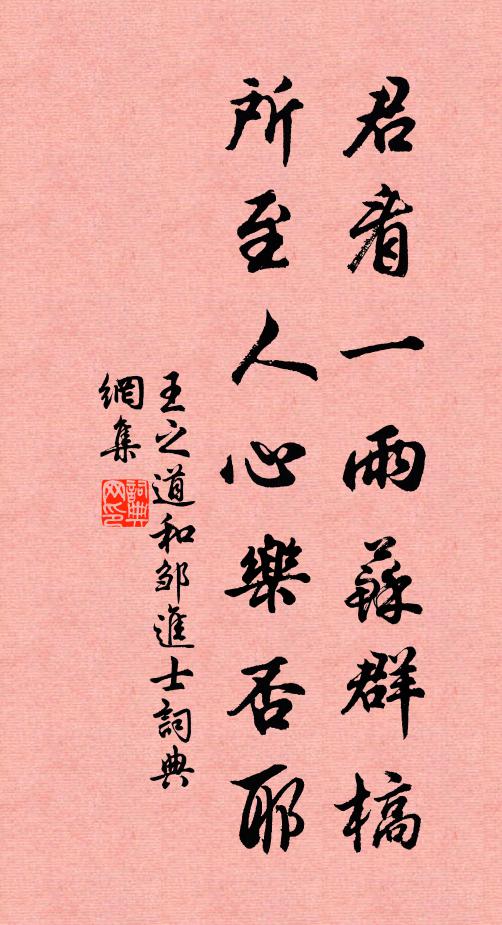 君看一雨蘇群槁
所至人心樂否耶
王之道和邹進士詞典
網集
詞典
网印